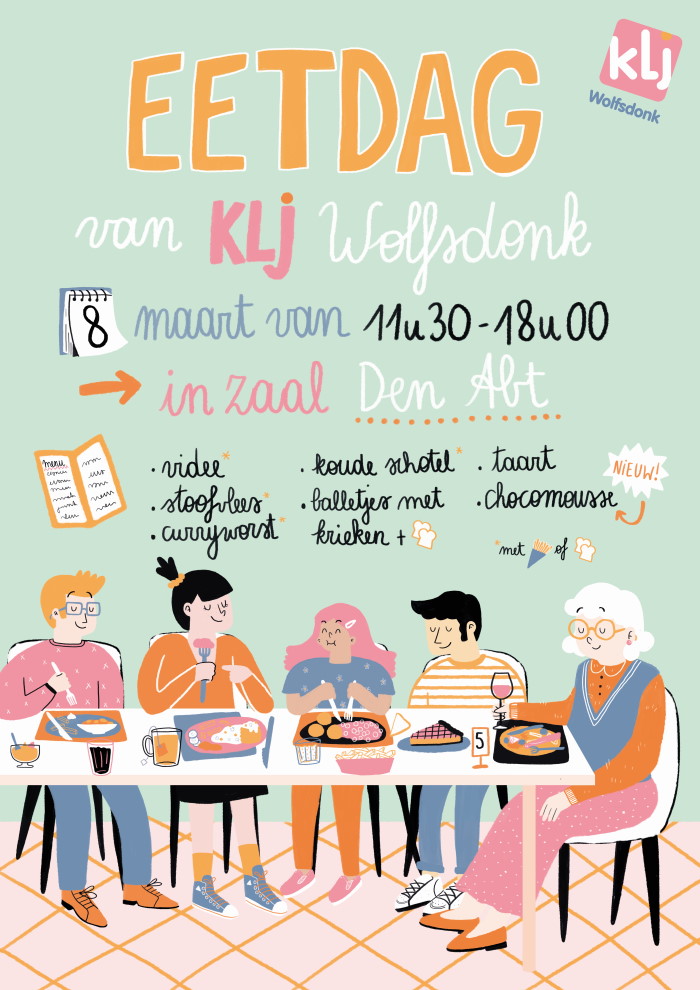 klj
Wolfsdonk
EETDAG
van KLj Wolfsdonk
8 maart van 11u30-18u00
in zaal Den Abt
menu
• videe*
• stoofvlees*
• curryworst*
• koude schotel*
• balletjes met
krieken +
• taart
• chocomousse
NiEUW!
*met of
5